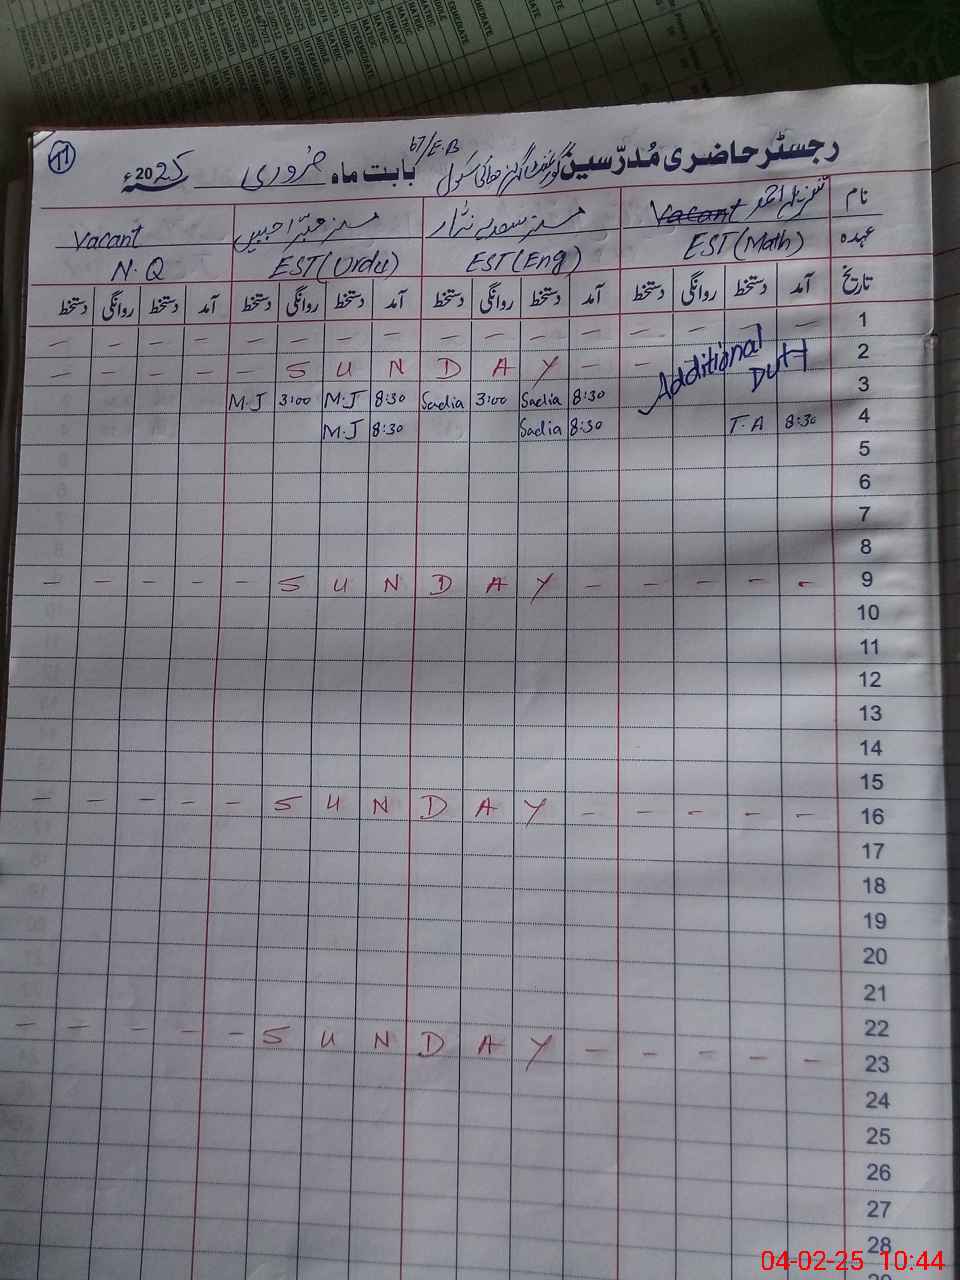 11
67/E.B
رجسٹر حاضری مُدرّسین گورنمنٹ گرلز ہائی سکول بابت ماہ فروری 2025ء
نام Vacant تنزیلہ احمد مسز سعدیہ نذر مسز Vacant
عہدہ EST(Math) EST(Eng) EST(Urdu) N.Q
تاریخ آمد دستخط روانگی دستخط آمد دستخط روانگی دستخط آمد دستخط روانگی دستخط آمد دستخط روانگی دستخط
1 - - - - - - - - - - - -
2 Additional Duty - - - S U N D A Y - - - - -
3 8:30 Sadia 3:00 Sadia 8:30 M.J 3:00 M.J
4 8:30 T.A 8:30 Sadia 8:30 M.J
5
6
7
8
9 - - - - - S U N D A Y - - - - -
10
11
12
13
14
15
16 - - - - - S U N D A Y - - - - -
17
18
19
20
21
22
23 - - - - - S U N D A Y - - - - -
24
25
26
27
28
04-02-25 10:44